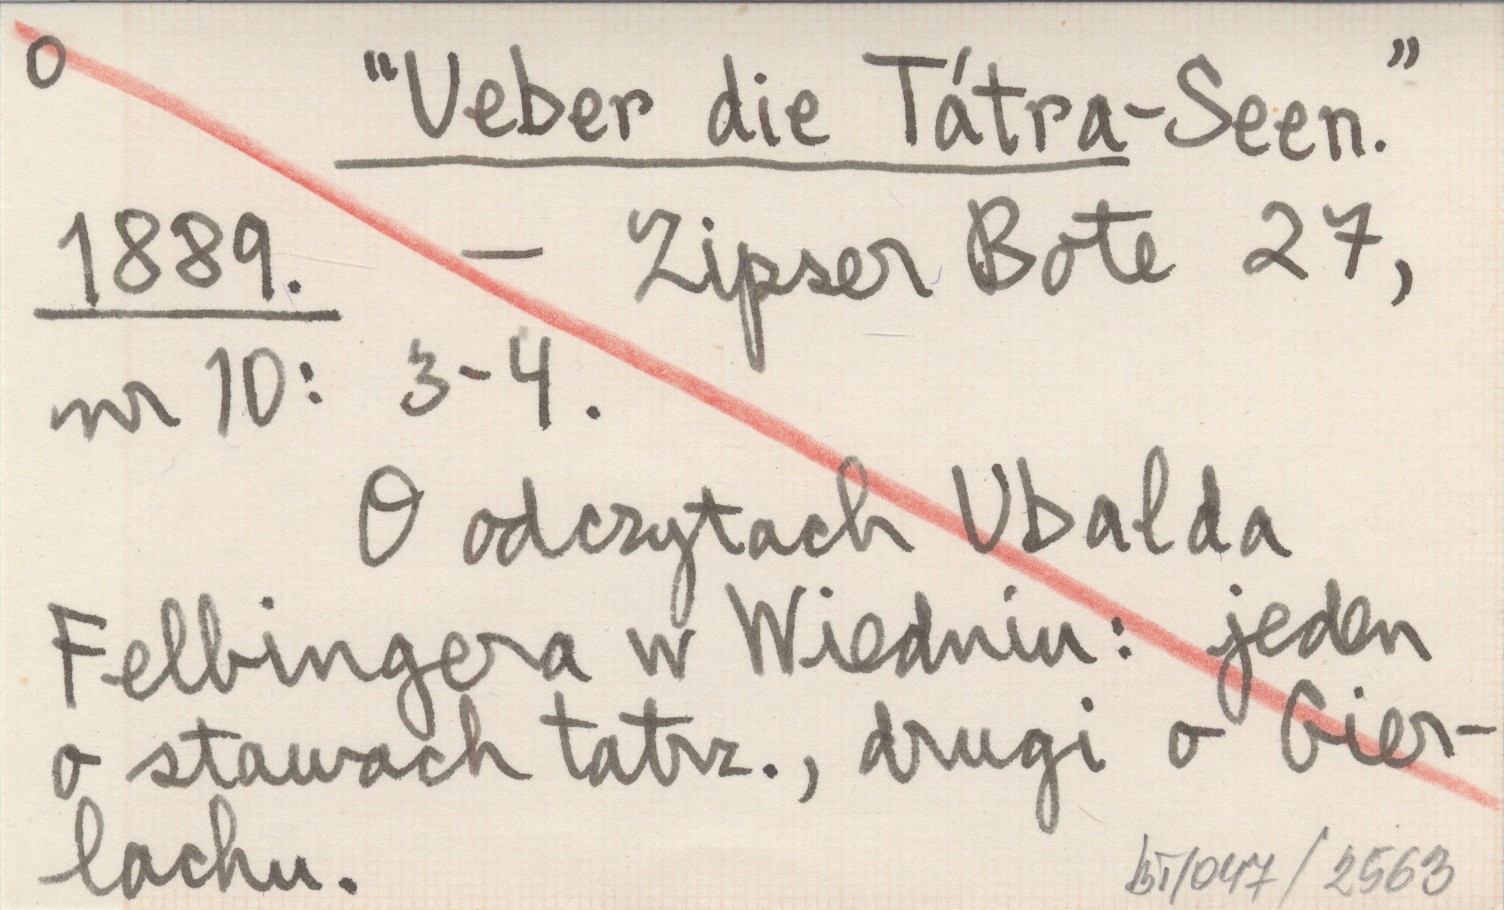 o
"Ueber die Tátra-Seen."
1889. — Zipser Bote 27,
nr 10: 3-4.
O odczytach Ubalda
Felbingera w Wiedniu: jeden
o stawach tatrz., drugi o Gier-
lachu.
bT/047/2563